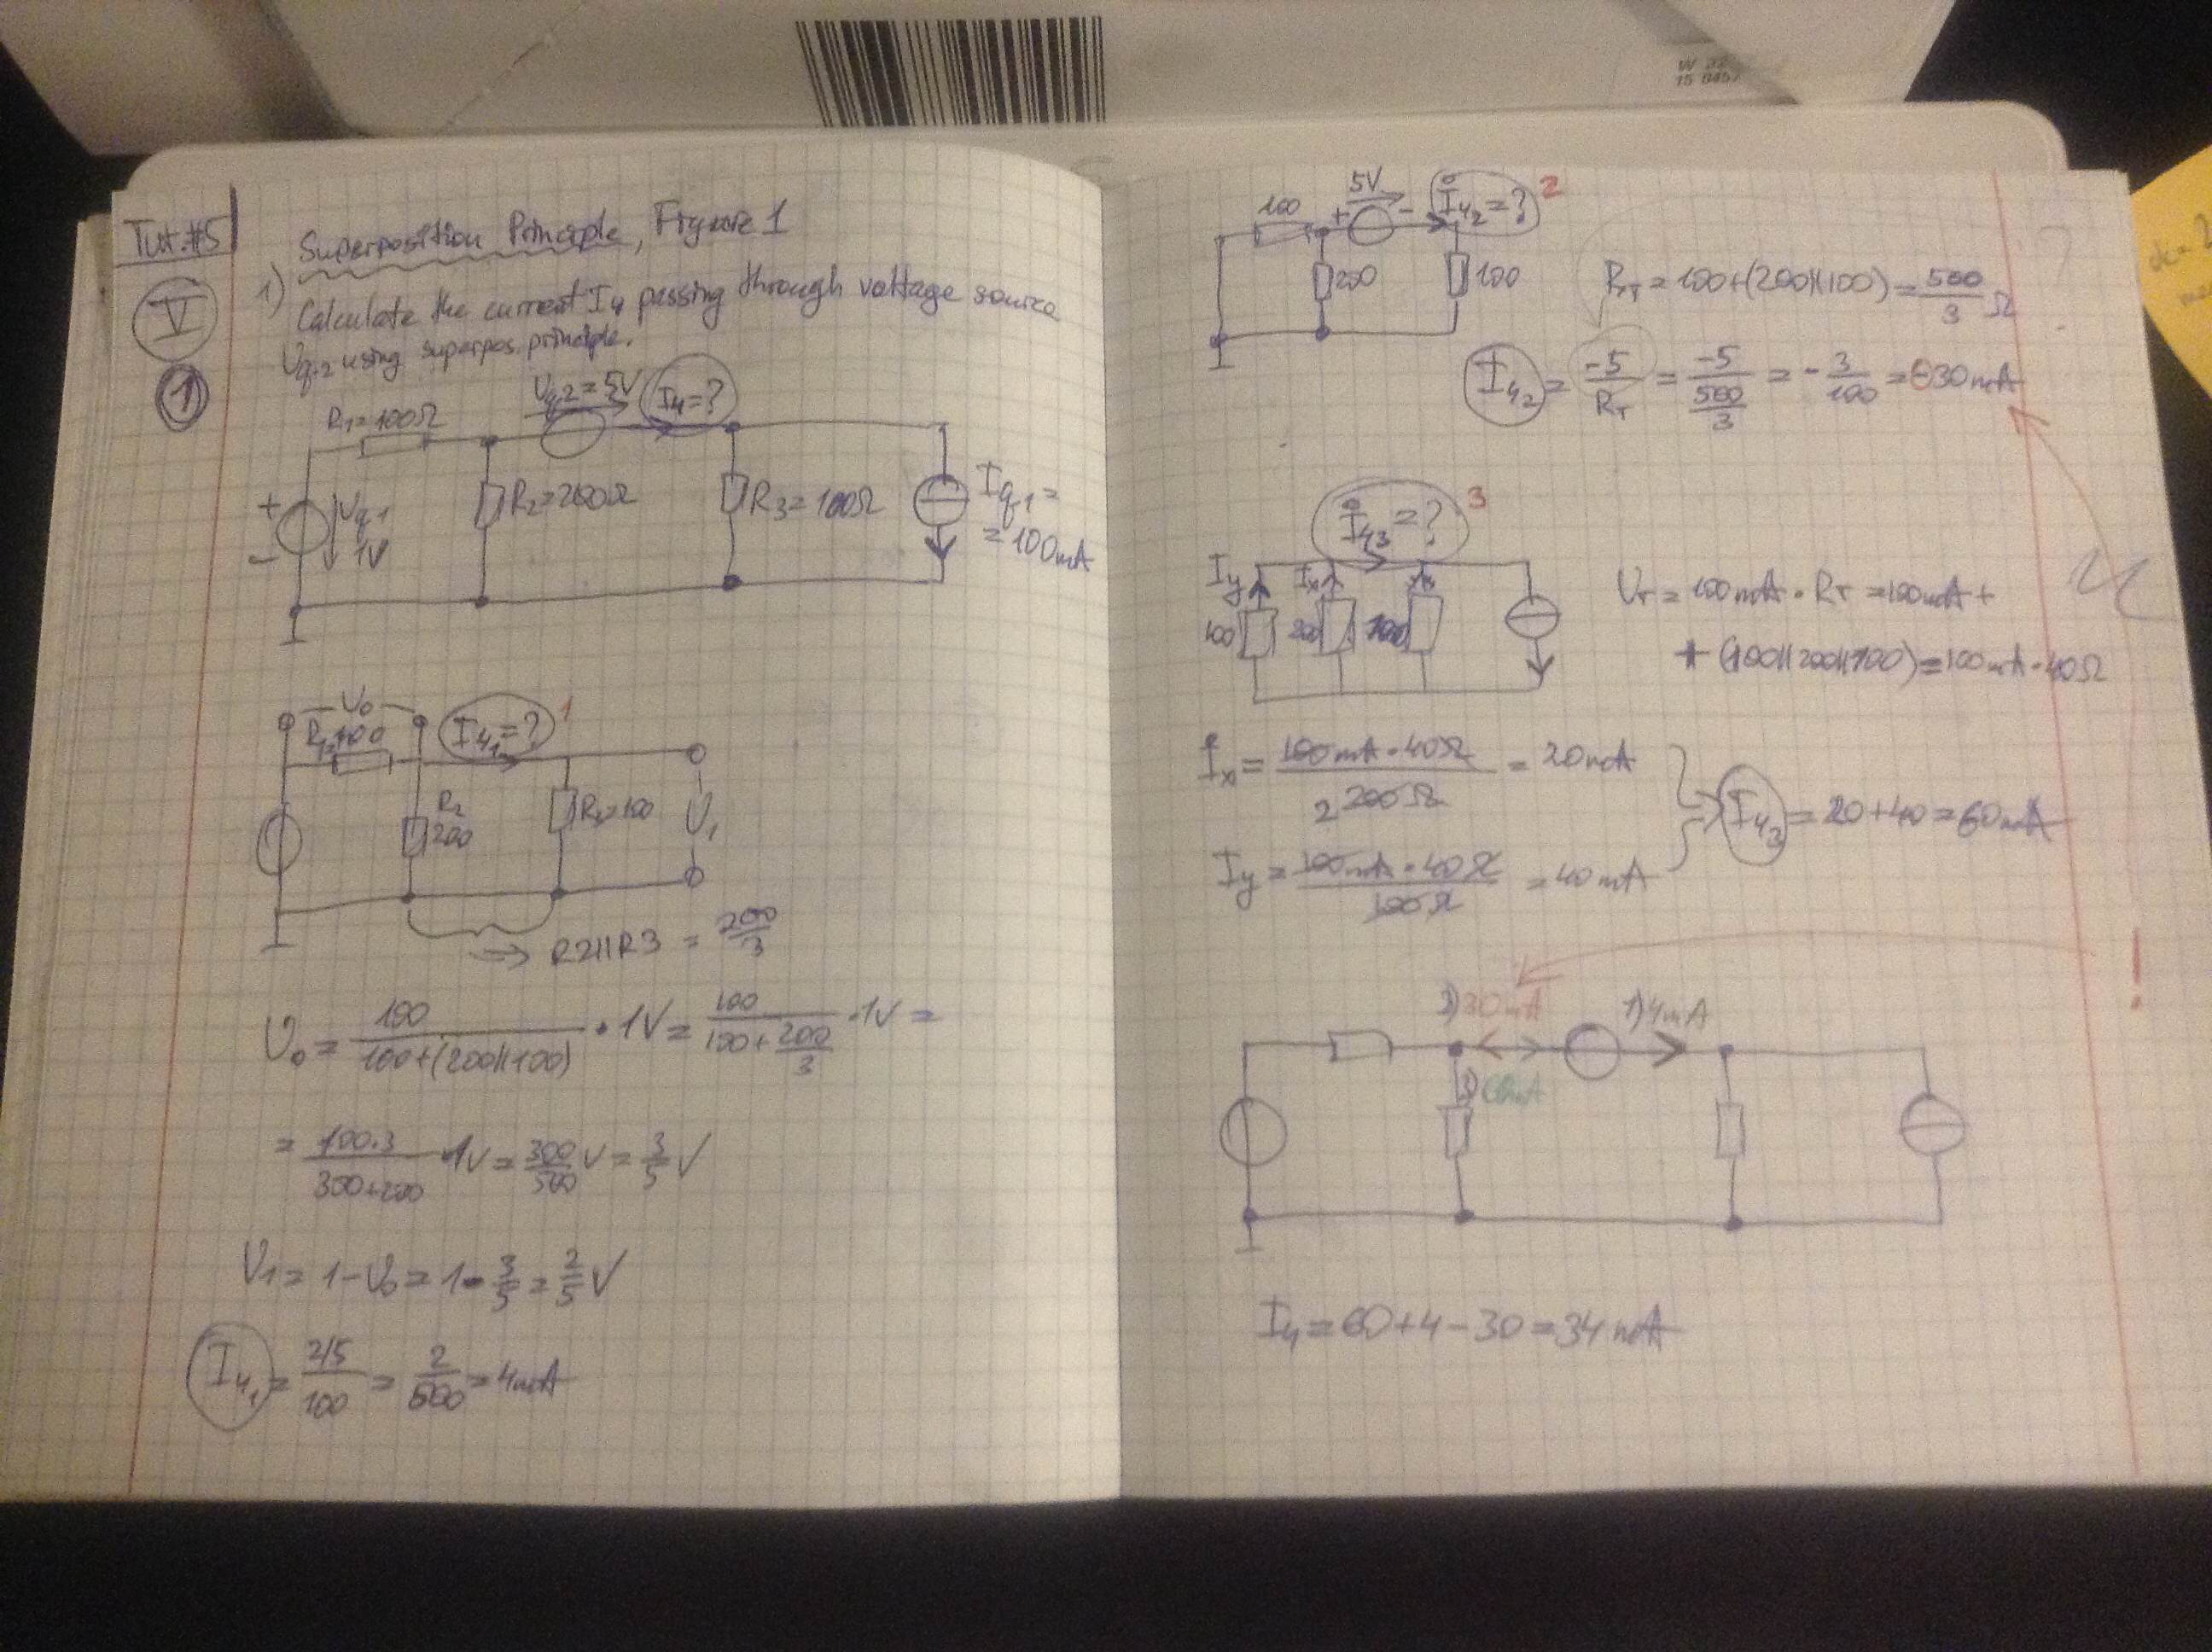 W 32
15 0457
Tut.#5
V
1
Superposition Principle, Figure 1
1)
Calculate the current I4 passing through voltage source
Uq2 using superpos. principle.
Uq2=5V
I4=?
R1=100Ω
+
-
Uq1
1V
R2=200Ω
R3=100Ω
Iq1=
=100mA
U0
R1=100
I41=?
1
R2
200
R3=100
U1
→ R2||R3 = 200/3
U0 = 100/(100+(200||100)) · 1V = 100/(100+200/3) · 1V =
= 100·3/(300+200) · 1V = 300/500 V = 3/5 V
U1 = 1-U0 = 1-3/5 = 2/5 V
I41 = 2/5/100 = 2/500 = 4mA
100
5V
+
-
I42=?
2
200
100
RT = 100+(200||100) = 500/3 Ω
I42 = -5/RT = -5/(500/3) = -3/100 = -30mA
I43=?
3
Iy
Ix
100
200
100
UT = 100mA · RT = 100mA *
* (100||200||100) = 100mA · 40Ω
Ix = 100mA · 40Ω/2 200Ω = 20mA
Iy = 100mA · 40Ω/100Ω = 40mA
I43 = 20+40 = 60mA
!
2) 30mA
1) 4mA
3) 60mA
I4 = 60+4-30 = 34mA